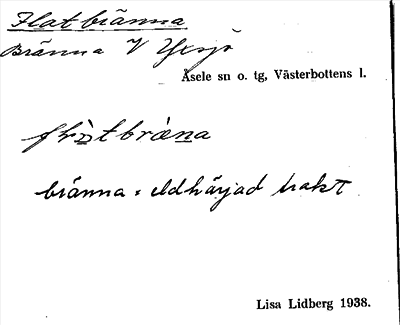 Flatbränna
Bränna V Yxsjö
Åsele sn o. tg, Västerbottens l.
bränna = eldhärjad trakt
Lisa Lidberg 1938.